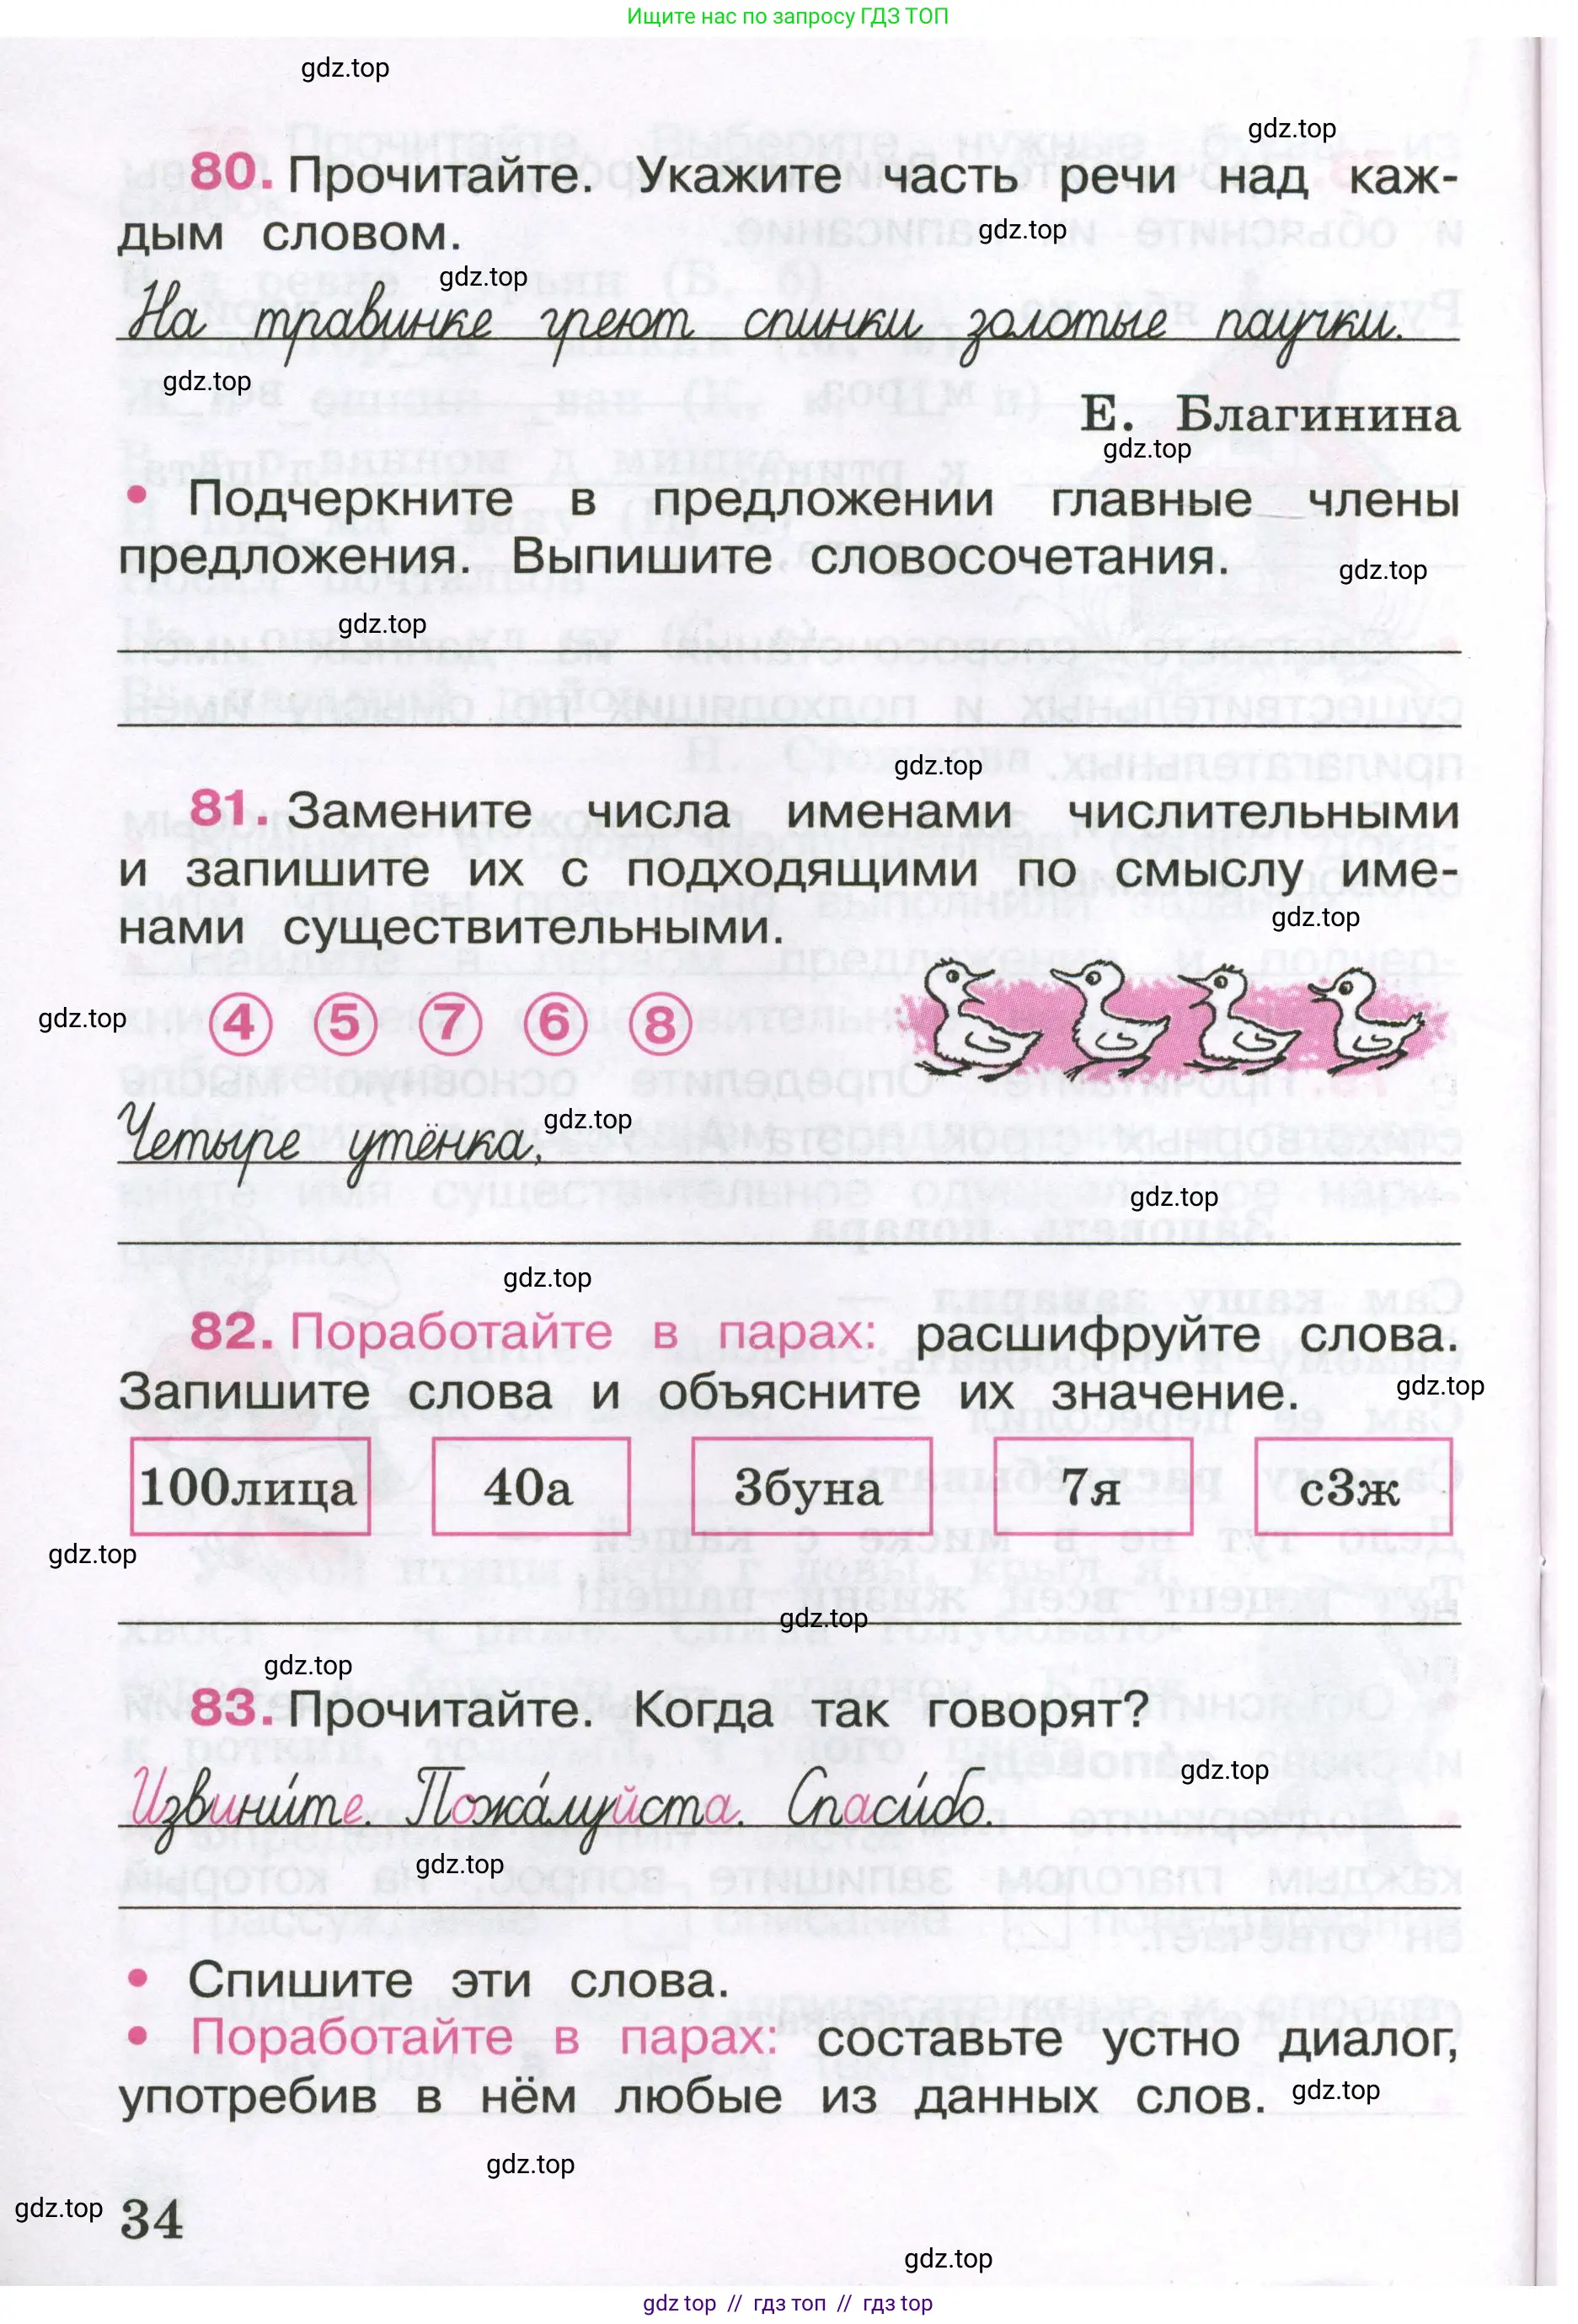 Ищите нас по запросу ГДЗ ТОП
gdz.top
gdz.top
80. Прочитайте. Укажите часть речи над каж-
дым словом.
gdz.top
gdz.top
На травинке греют спинки золотые паучки.
gdz.top
Е. Благинина
gdz.top
• Подчеркните в предложении главные члены
предложения. Выпишите словосочетания.
gdz.top
gdz.top
gdz.top
81. Замените числа именами числительными
и запишите их с подходящими по смыслу име-
нами существительными.
gdz.top
gdz.top
4 5 7 6 8
Четыре утёнка,
gdz.top
gdz.top
gdz.top
82. Поработайте в парах: расшифруйте слова.
Запишите слова и объясните их значение.
gdz.top
100лица 40а 3буна 7я с3ж
gdz.top
gdz.top
gdz.top
83. Прочитайте. Когда так говорят?
gdz.top
Извини́те. Пожа́луйста. Спаси́бо.
gdz.top
• Спишите эти слова.
• Поработайте в парах: составьте устно диалог,
употребив в нём любые из данных слов.
gdz.top
gdz.top
gdz.top
34
gdz.top
gdz top // гдз топ // гдз top